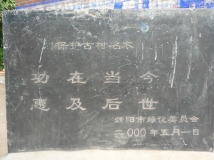 保护古树名木
功在当今
惠及后世
阳市绿化委员会
二000年五月一日